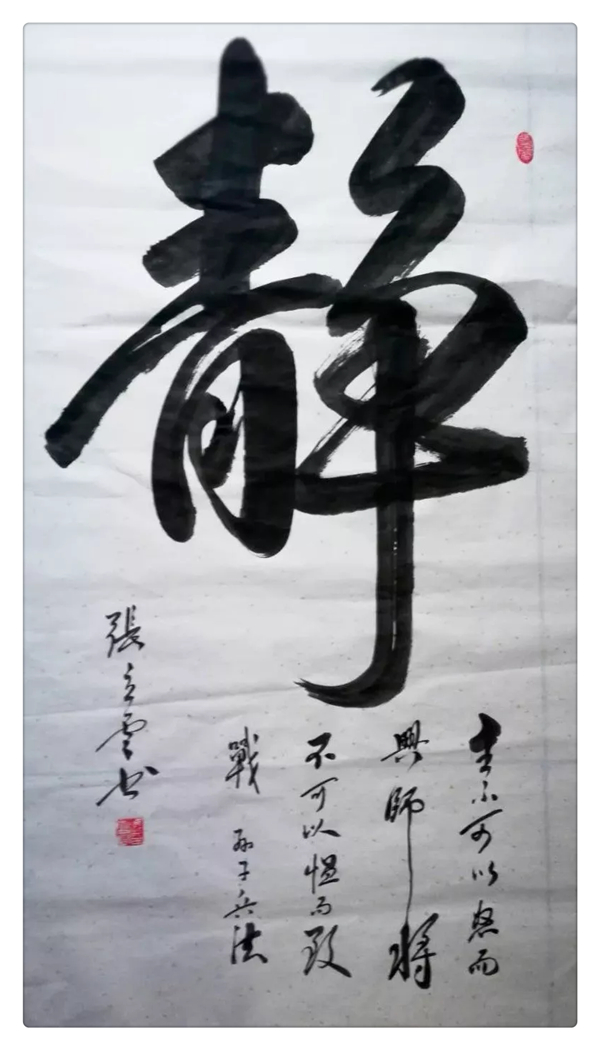 靜
主不可以怒而
興師將
不可以愠而致
戰 孫子兵法
張立雲书